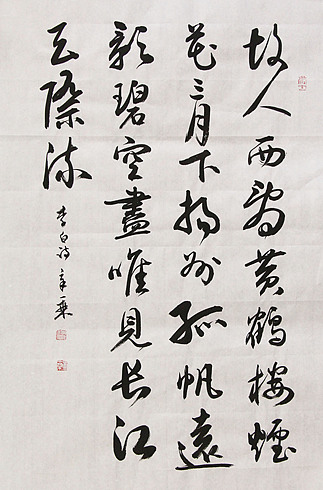 故人西辭黄鶴樓煙
花三月下揚州孤帆遠
影碧空盡唯見长江
天際流
李白詩